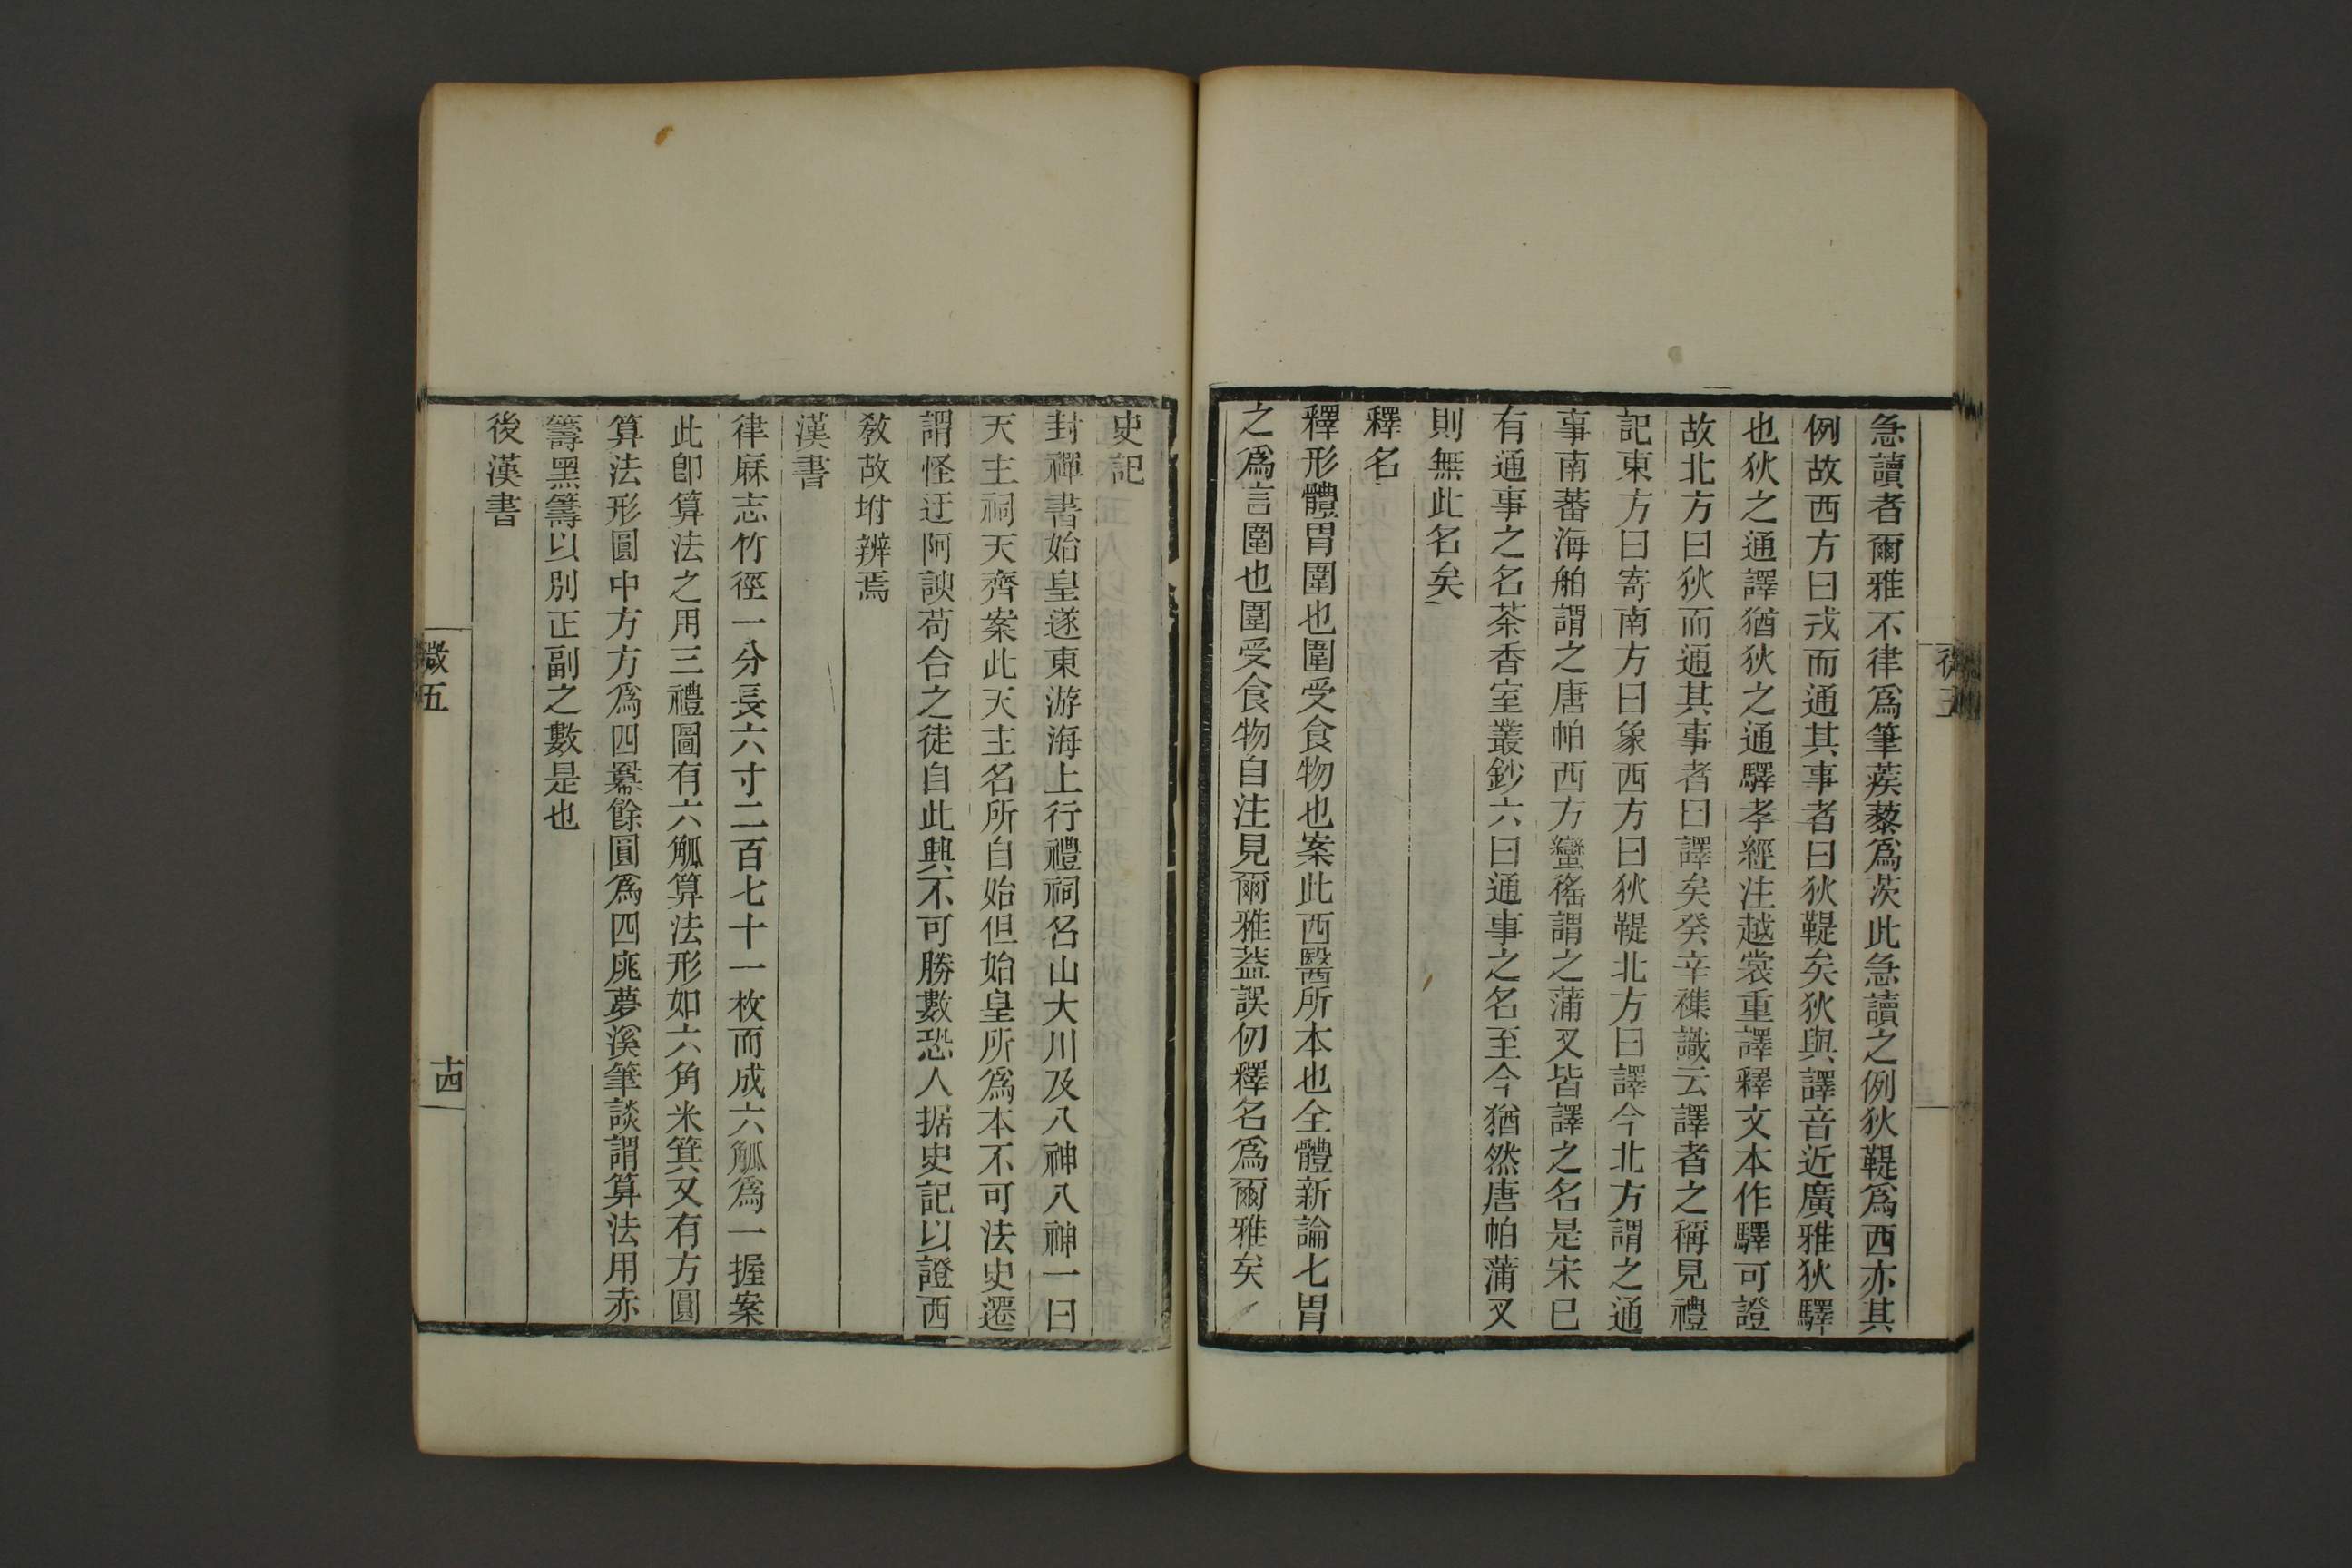 急讀者爾雅不律爲筆蒺藜爲茨此急讀之例狄鞮爲西亦其
例故西方曰戎而通其事者曰狄鞮矣狄與譯音近廣雅狄驛
也狄之通譯猶狄之通驛孝經注越裳重譯釋文本作驛可證
故北方曰狄而通其事者曰譯矣癸辛襍識云譯者之稱見禮
記東方曰寄南方曰象西方曰狄鞮北方曰譯今北方謂之通
事南蕃海舶謂之唐帕西方蠻徭謂之蒲叉皆譯之名是宋已
有通事之名茶香室叢鈔六曰通事之名至今猶然唐帕蒲叉
則無此名矣
釋名
釋形體胃圍也圍受食物也案此西醫所本也全體新論七胃
之爲言圍也圍受食物自注見爾雅葢誤仞釋名爲爾雅矣
史記
封禪書始皇遂東游海上行禮祠名山大川及八神八神一曰
天主祠天齊案此天主名所自始但始皇所爲本不可法史遷
謂怪迂阿諛苟合之徒自此興不可勝數恐人据史記以證西
敎故坿辨焉
漢書
律厤志竹徑一分長六寸二百七十一枚而成六觚爲一握案
此卽算法之用三禮圖有六觚算法形如六角米箕又有方圓
算法形圓中方方爲四冪餘圓爲四庣夢溪筆談謂算法用赤
籌黑籌以別正副之數是也
後漢書
識五
十四